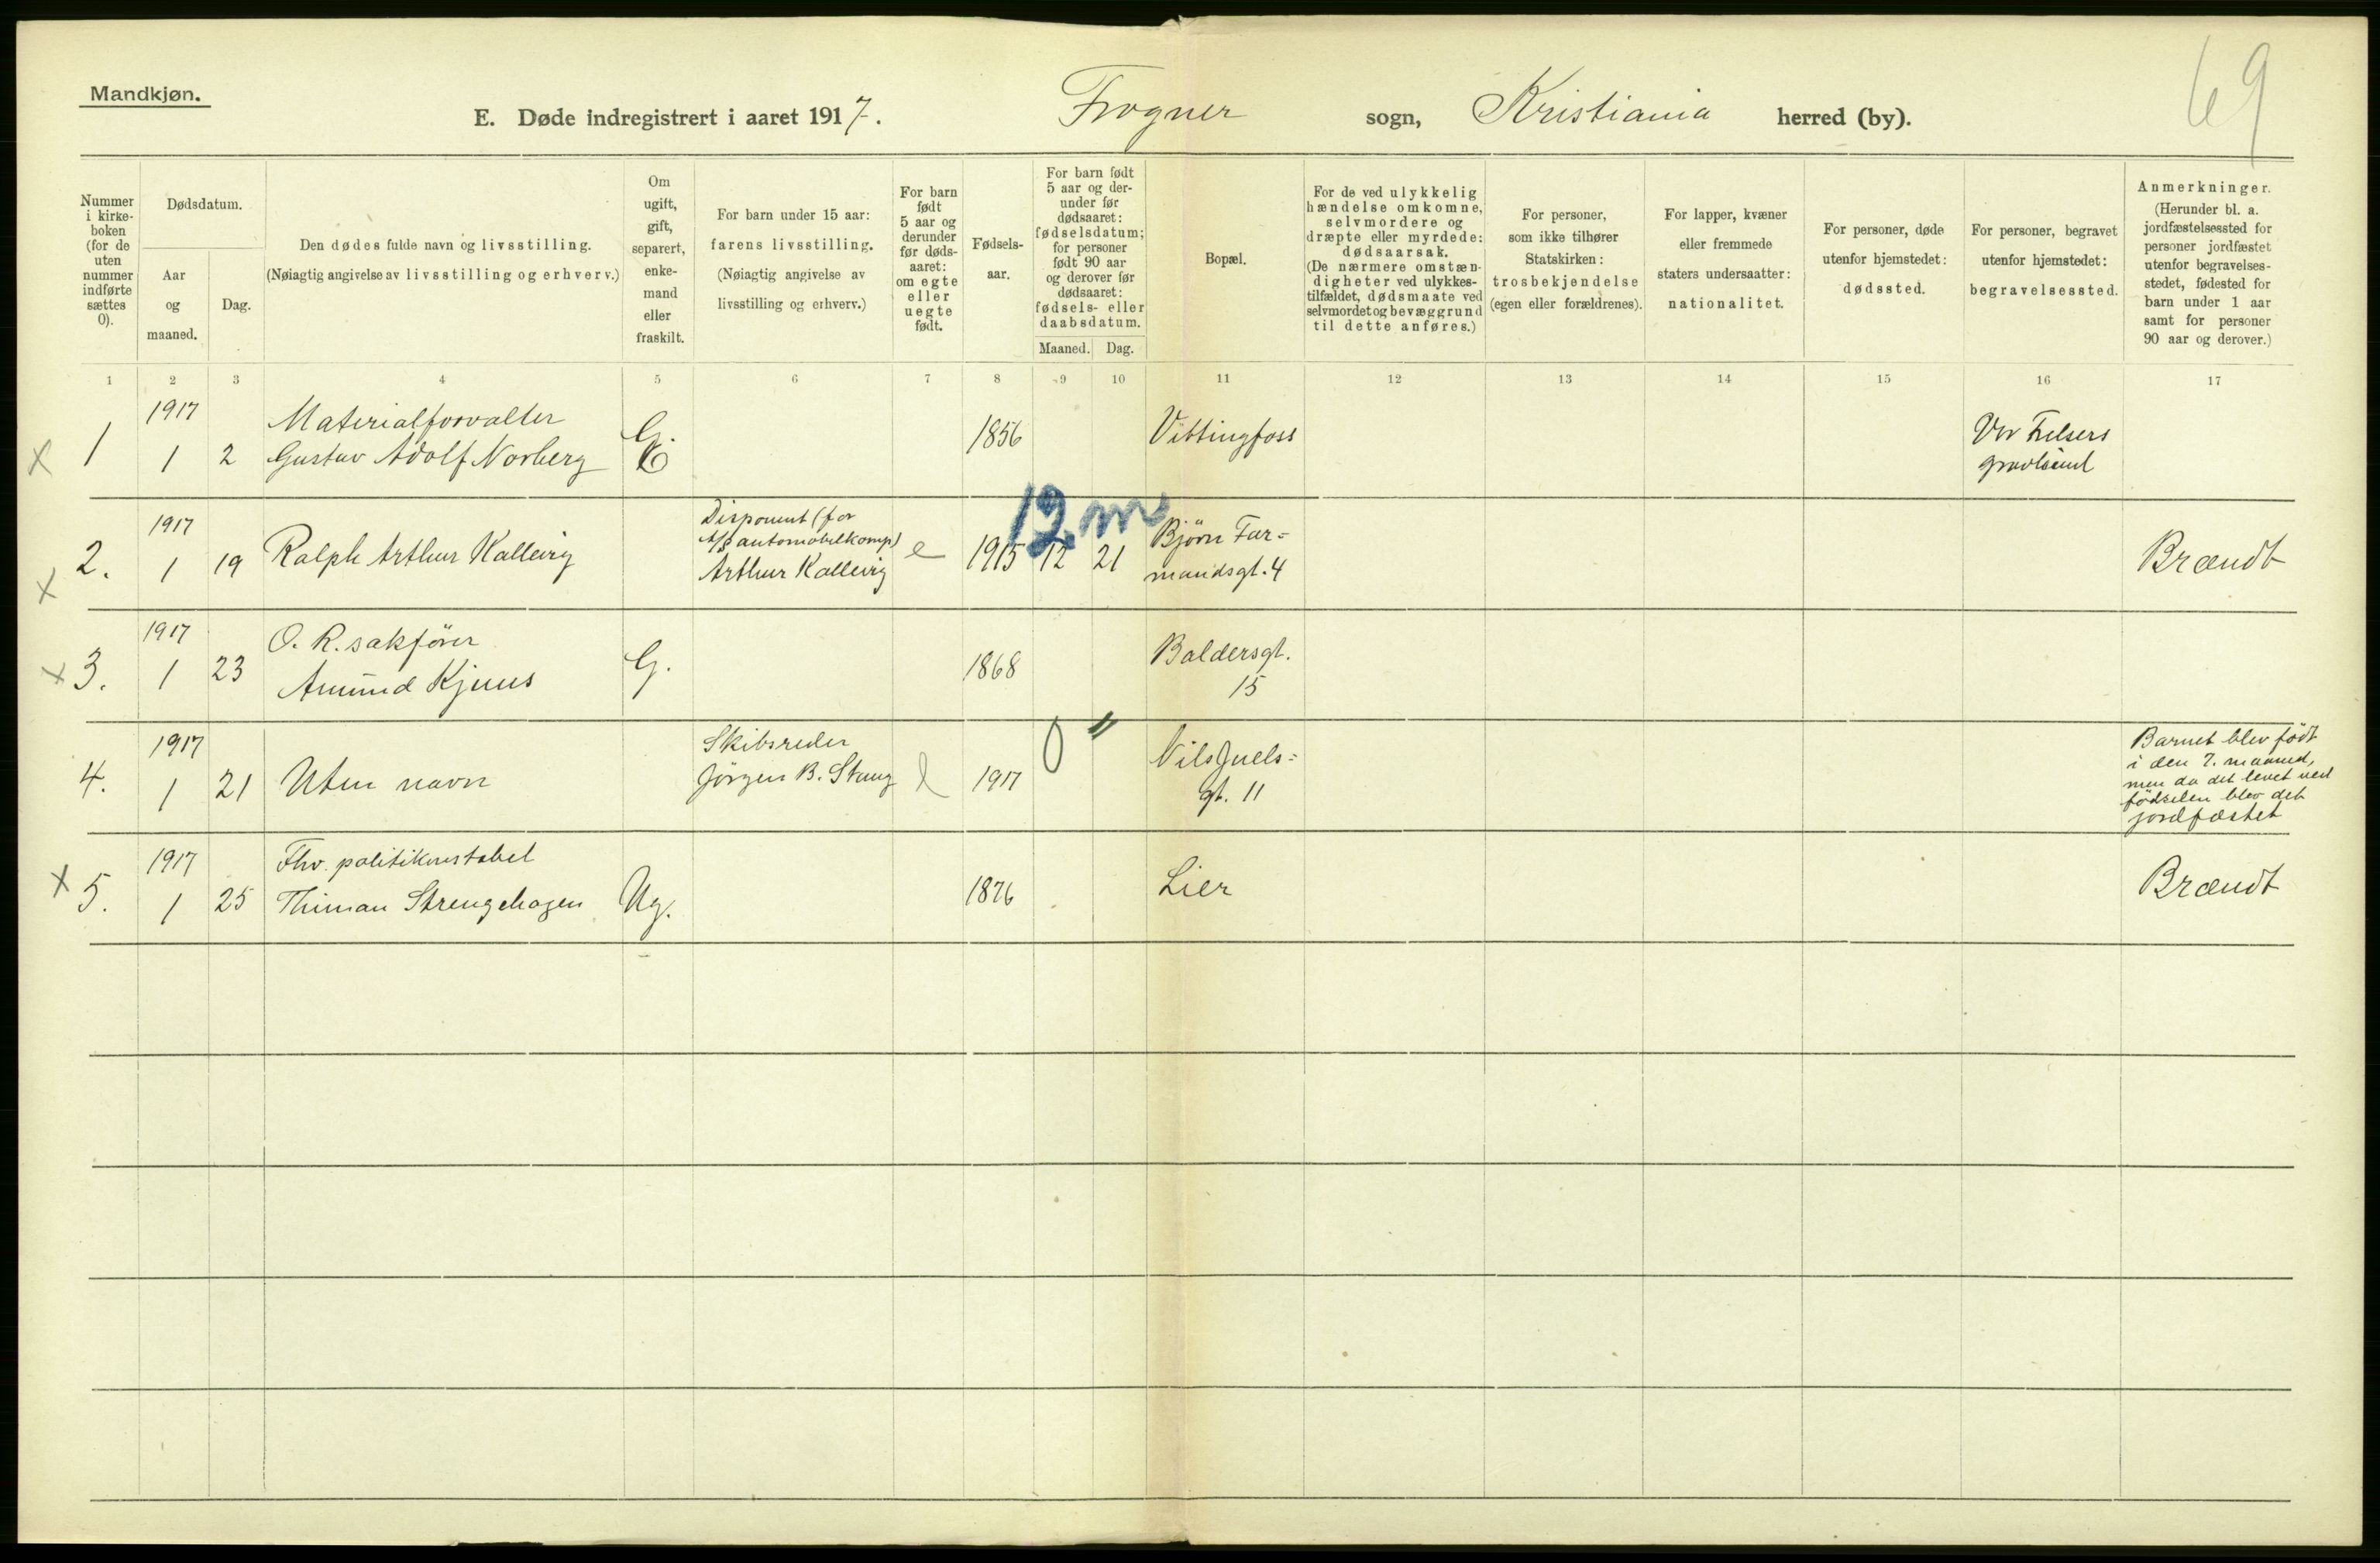 Mandkjøn.
E. Døde indregistrert i aaret 1917. Frogner sogn, Kristiania herred (by).
69
Nummer
i kirke-
boken
(for de
uten
nummer
indførte
sættes
0).
Dødsdatum.
Aar
og
maaned.
Dag.
Den dødes fulde navn og livsstilling.
(Nøiagtig angivelse av livsstilling og erhverv.)
Om
ugift,
gift,
separert,
enke-
mand
eller
fraskilt.
For barn under 15 aar:
farens livsstilling.
(Nøiagtig angivelse av
livsstilling og erhverv.)
For barn
født
5 aar og
derunder
før døds-
aaret:
om egte
eller
uegte
født.
Fødsels-
aar.
For barn født
5 aar og der-
under før
dødsaaret:
fødselsdatum;
for personer
født 90 aar
og derover før
dødsaaret:
fødsels- eller
daabsdatum.
Maaned. Dag.
Bopæl.
For de ved ulykkelig
hændelse omkomne,
selvmordere og
dræpte eller myrdede:
dødsaarsak.
(De nærmere omstæn-
digheter ved ulykkes-
tilfældet, dødsmaate ved
selvmordet og bevæggrund
til dette anføres.)
For personer,
som ikke tilhører
Statskirken:
trosbekjendelse
(egen eller forældrenes).
For lapper, kvæner
eller fremmede
staters undersaatter:
nationalitet.
For personer, døde
utenfor hjemstedet:
dødssted.
For personer, begravet
utenfor hjemstedet:
begravelsessted.
Anmerkninger.
(Herunder bl. a.
jordfæstelsessted for
personer jordfæstet
utenfor begravelses-
stedet, fødested for
barn under 1 aar
samt for personer
90 aar og derover.)
1 2 3 4 5 6 7 8 9 10 11 12 13 14 15 16 17
1917 Materialforvalter
x 1 1 2 Gustav Adolf Norberg G. 1856 Vittingfoss
Vor Frelsers
gravlund
1917 Disponent (for
A/S automobilkomp)
12 m
x 2. 1 19 Ralph Arthur Kallevig Arthur Kallevig e 1915 12 21
Bjørn Far-
mandsgt. 4
Brændt
1917 O. R. sakfører
x 3. 1 23 Amund Kjuus G. 1868
Baldersgt.
15
1917 Skibsreder
4. 1 21 Uten navn Jörgen B. Stang e 1917 0 "
Nils Juels-
gt. 11
Barnet blev födt
i den 7. maaned,
men da det levet ved
födselen blev det
jordfæstet
1917 Fhv. politikonstabel
x 5. 1 25 Thiman Strengehagen Ug. 1876 Lier Brændt